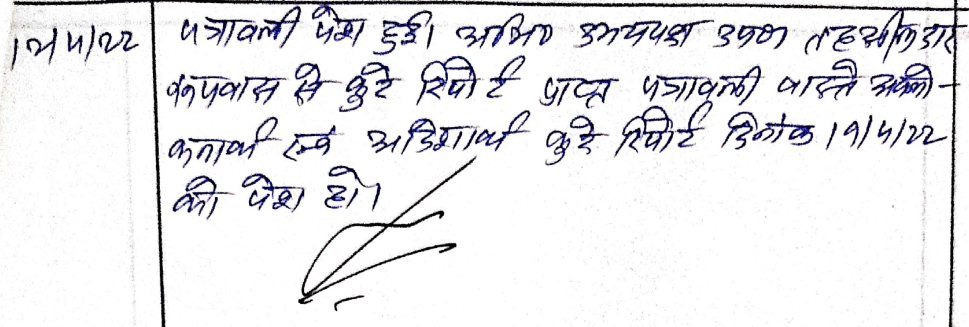 12/4/22 पत्रावली पेश हुई। अभि० उभयपक्ष उप० तहसीलदार
रूपवास से कुर्रे रिपोर्ट प्राप्त पत्रावली वास्ते अवलो-
कनार्थ एवं आदेशार्थ कुर्रे रिपोर्ट दिनांक 19/4/22
को पेश हो।